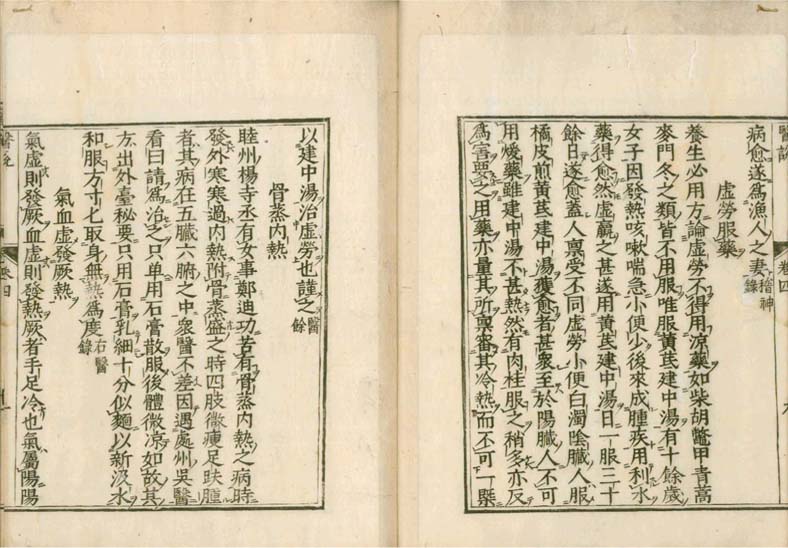 病愈遂爲漁人之妻稽神錄
虛勞服藥
養生必用方論虛勞不得用涼藥如柴胡鼈甲青蒿
麥門冬之類皆不用服唯服黃茋建中湯有十餘歲
女子因發熱咳嗽喘急小便少後來成腫疾用利水
藥得愈然虛羸之甚遂用黃茋建中湯日一服三十
餘日遂愈蓋人禀受不同虛勞小便白濁陰臟人服
橘皮煎黃茋建中湯獲愈者甚衆至於陽臟人不可
用煖藥雖建中湯不甚熱然有肉桂服之稍多亦反
爲害要之用藥亦量其所禀審其冷熱而不可一槩
以建中湯治虛勞也謹之醫餘
骨蒸內熱
睦州楊寺丞有女事鄭迪功苦有骨蒸內熱之病時
發外寒寒過內熱附骨蒸盛之時四肢微瘦足趺腫
者其病在五臟六腑之中衆醫不差因遇處州吳醫
看曰請爲治之只单用石膏散服後體微凉如故其
方出外臺秘要只用石膏乳細十分似麵以新汲水
和服方寸匕取身無熱爲度右醫錄
氣血虛發厥熱
氣虛則發厥血虛則發熱厥者手足冷也氣屬陽陽
醫說
卷四